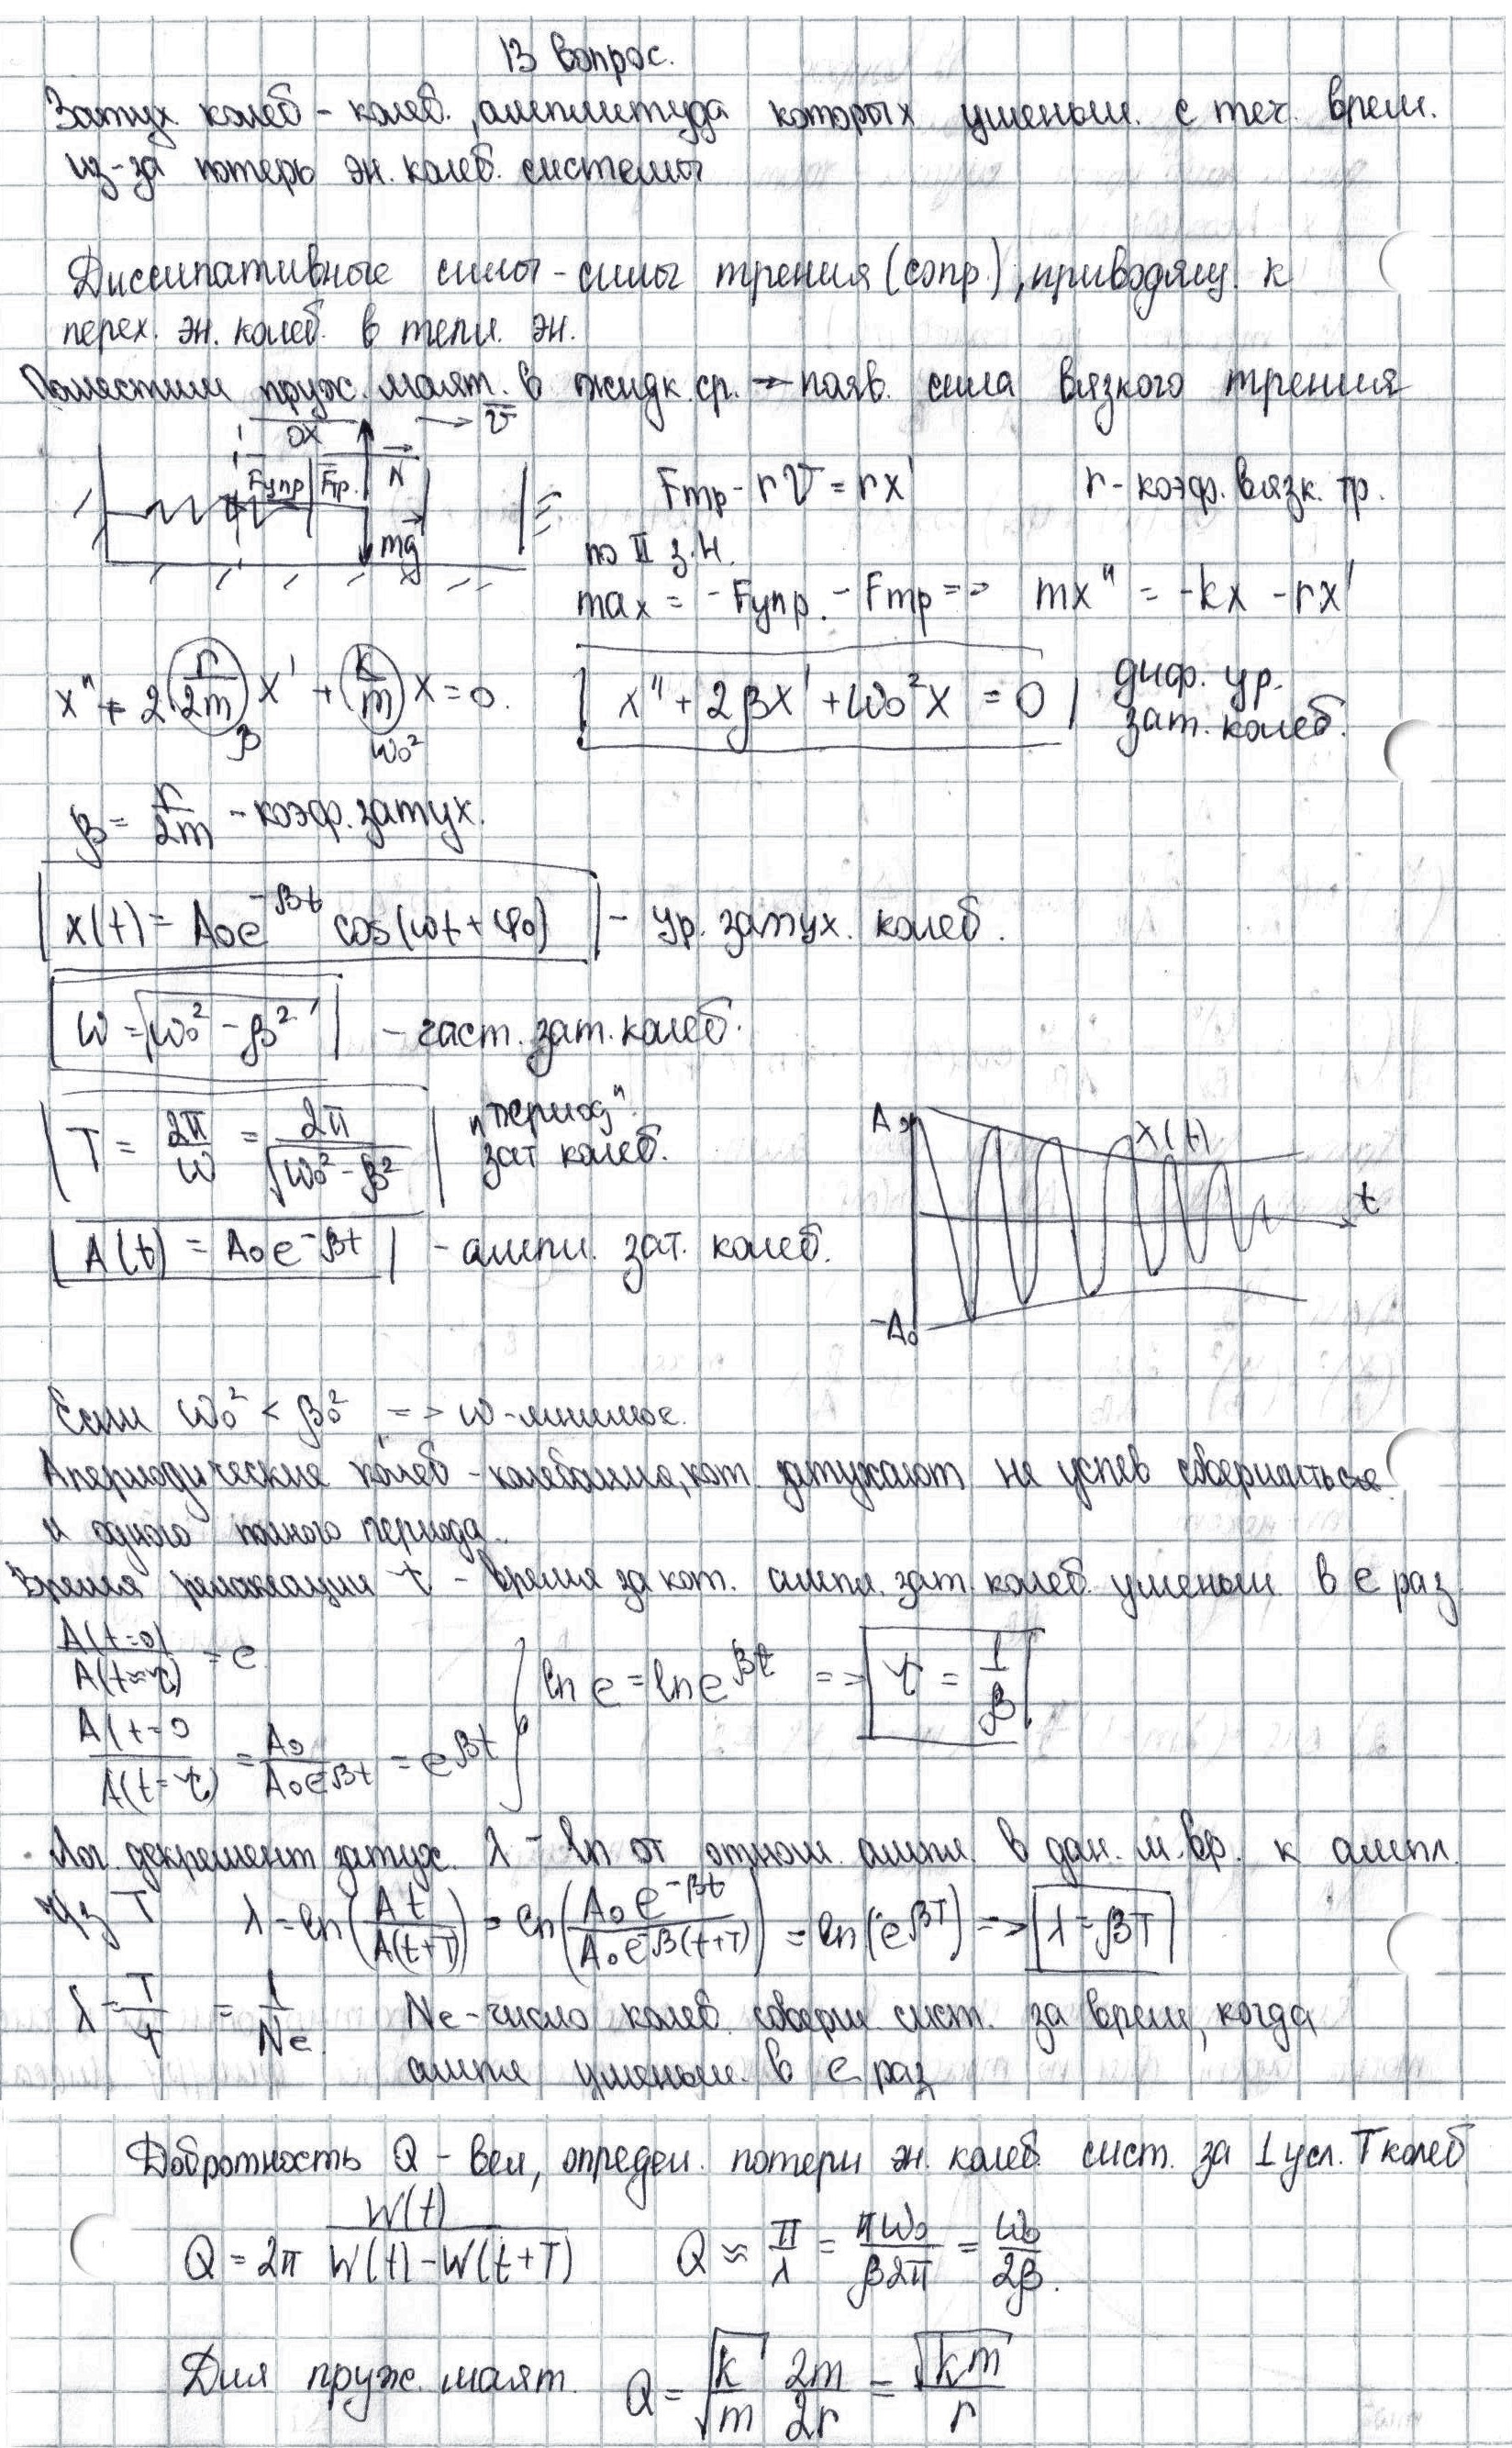 13 вопрос.
Затух. колеб - колеб., амплитуда которых уменьш. с теч. врем.
из-за потерь эн. колеб. системы
Диссипативные силы - силы трения (сопр.), приводящ. к
перех. эн. колеб. в тепл. эн.
Поместим пруж. маят. в жидк. ср. → появ. сила вязкого трения
OX → v
Fупр Fтр. N
mg
Fтр - rV = rx' r - коэф. вязк. тр.
по II з.Н.
max = -Fупр. - Fтр => mx" = -kx - rx'
x" + 2(r/2m)x' + (k/m)x = 0.
β ω₀²
x" + 2βx' + ω₀²x = 0 диф. ур.
зат. колеб.
β = r/2m - коэф. затух.
x(t) = A₀e^-βt cos(ωt + φ₀) - ур. затух. колеб.
ω = √(ω₀² - β²) - част. зат. колеб.
T = 2π/ω = 2π/√(ω₀² - β²) "период"
зат колеб.
A(t) = A₀e^-βt - ампл. зат. колеб.
A₀ x(t)
t
-A₀
Если ω₀² < β₀² => ω - мнимое.
Апериодические колеб - колебания, кот. затухают не успев совершиться
и одного полного периода.
Время релаксации τ - время за кот. ампл. зат. колеб. уменьш в e раз
A(t=0)/A(t=τ) = e
A(t=0/A(t=τ) = A₀/A₀e^-βt = e^βt
ln e = ln e^βt => τ = 1/β
Лог. декремент затух. λ - ln от отнош. ампл. в дан. м. вр. к ампл.
чрз T λ = ln(At/A(t+T)) = ln(A₀e^-βt/A₀e^-β(t+T)) = ln(e^βT) => λ = βT
λ = T/τ = 1/Ne Ne - число колеб. соверш сист. за врем, когда
ампл уменьш. в e раз
Добротность Q - вел, определ. потери эн. колеб. сист. за 1 усл. T колеб
Q = 2π W(t)/(W(t) - W(t+T)) Q ≈ π/λ = πω₀/β2π = ω₀/2β.
Для пруж. маят. Q = √(k/m) 2m/2r = √km/r